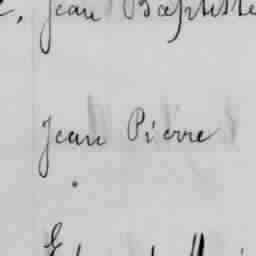 Jean Baptiste
Jean Pierre